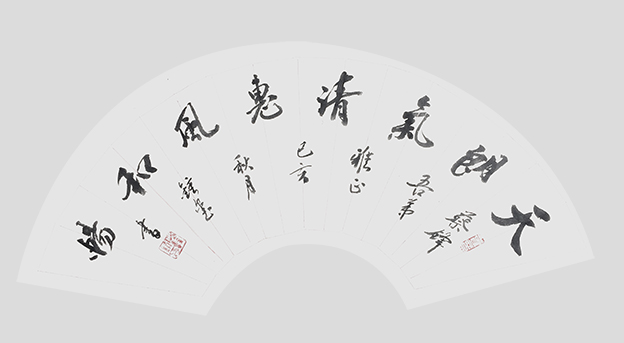 天朗氣清惠風和暢
吾弟
雅正
己亥
秋月
書